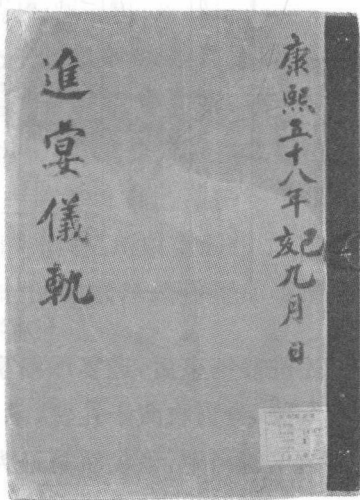 康熙五十八年己亥九月 日
進宴儀軌